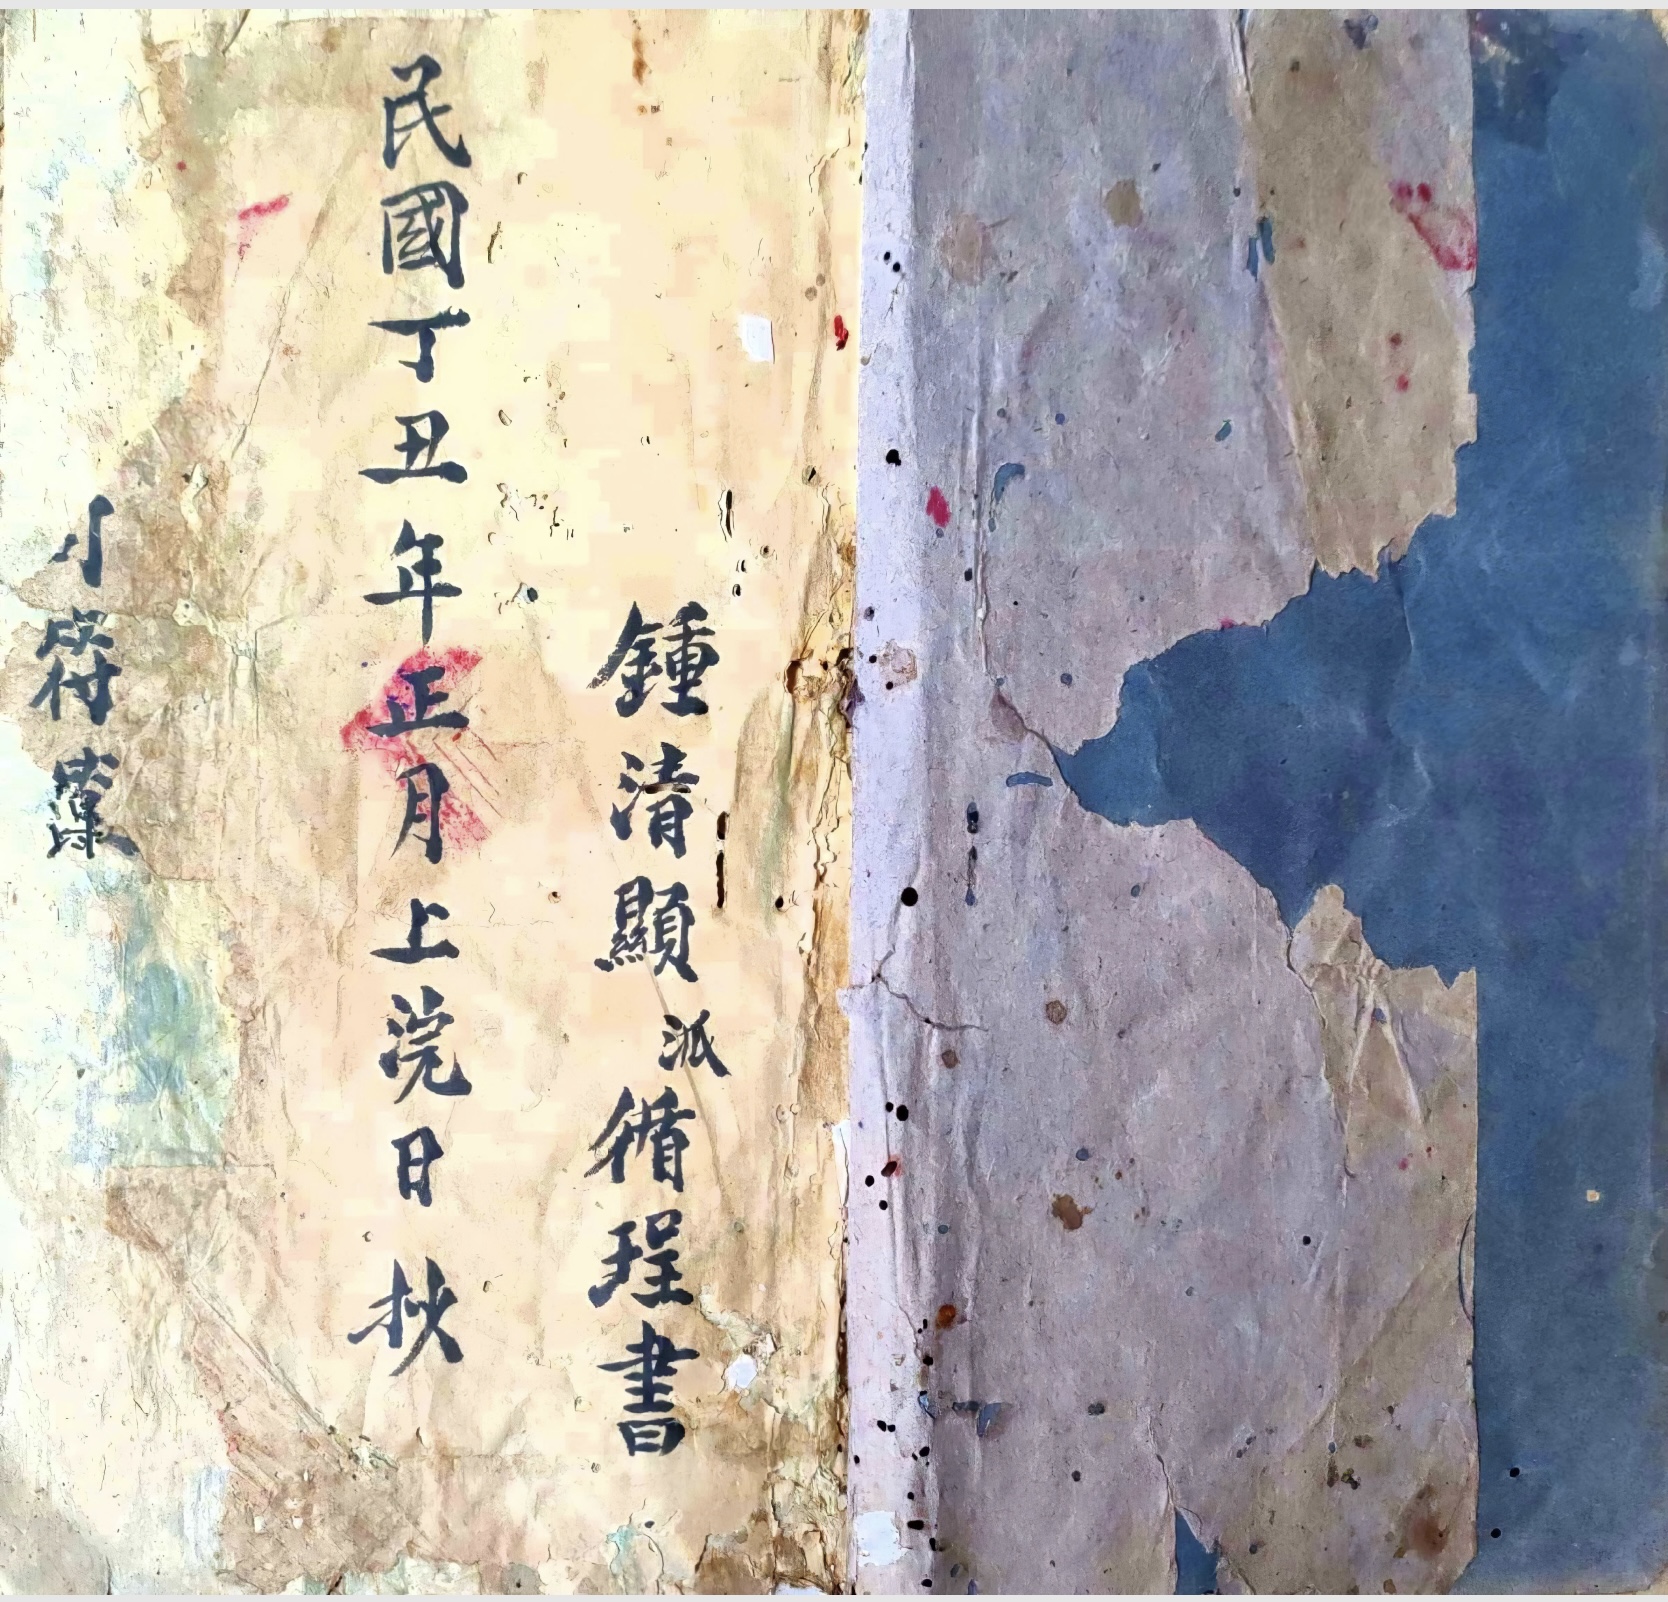 鍾清顯派循珵書
民國丁丑年正月上浣日抄
小符藁